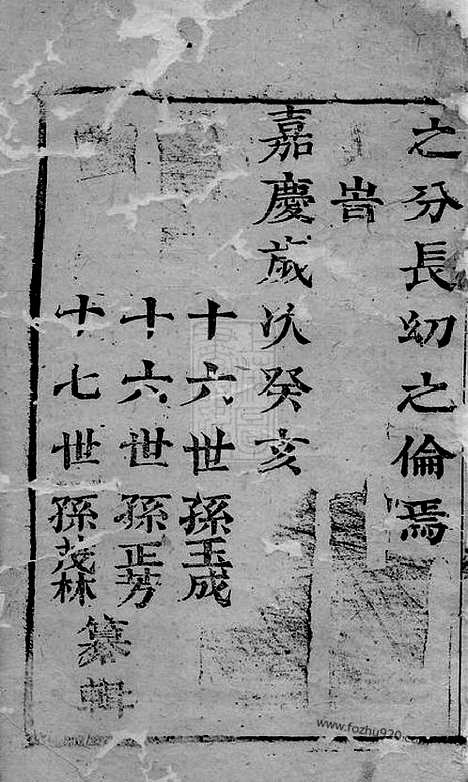 之分長幼之倫焉
旹
嘉慶歲次癸亥
十六世孫玉成
十六世孫正芳
十七世孫茂林
纂輯
www.fozhu920.com